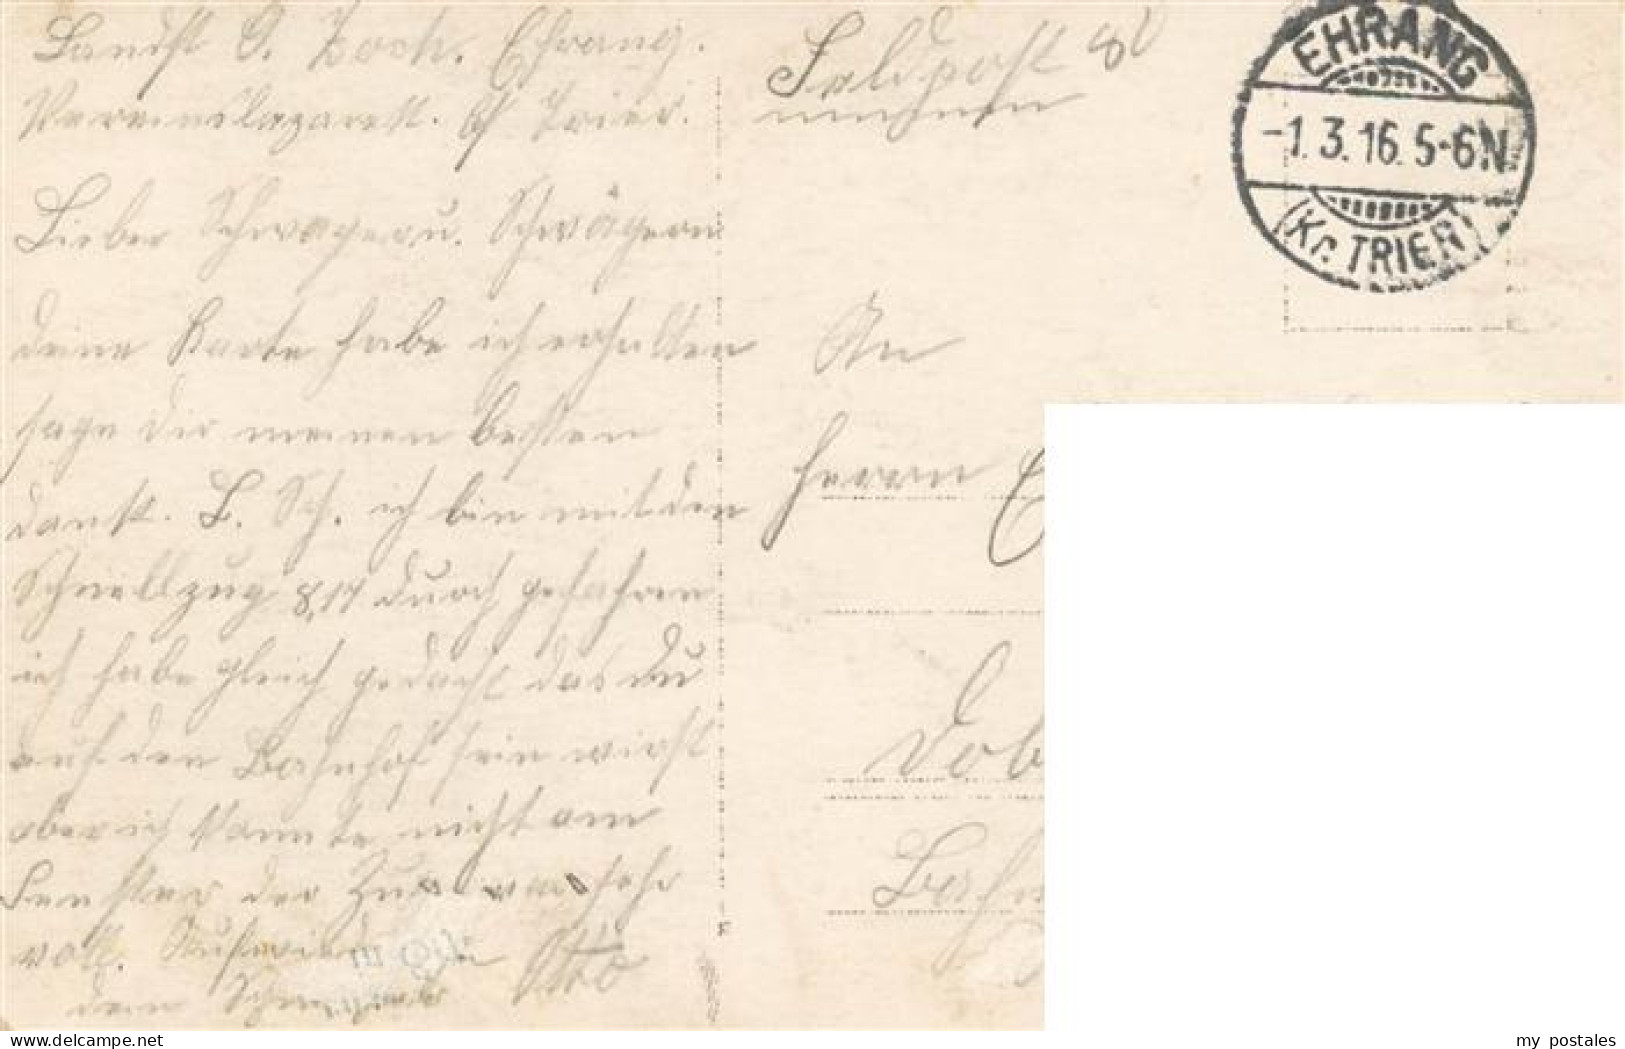 Landst O. Zoch. Ehrang.
Vereinslazarett. b/ Trier.
Lieber Schwager u. Schwägerin
deine Karte habe ich erhalten
sage dir meinen besten
dank. L. Sch. ich bin mit den
Schnellzug 8,17 durch gefahren
ich habe gleich gedacht das du
auf den Bahnhof sein wirst
aber ich konnte nicht am
Fenster der Zug war sehr
voll. Aufwieder
dein Schwager Otto
Feldpost
EHRANG
-1.3.16. 5-6N.
(Kr. TRIER)
An
Herrn
Dob
Bahn
delcampe.net
my_postales